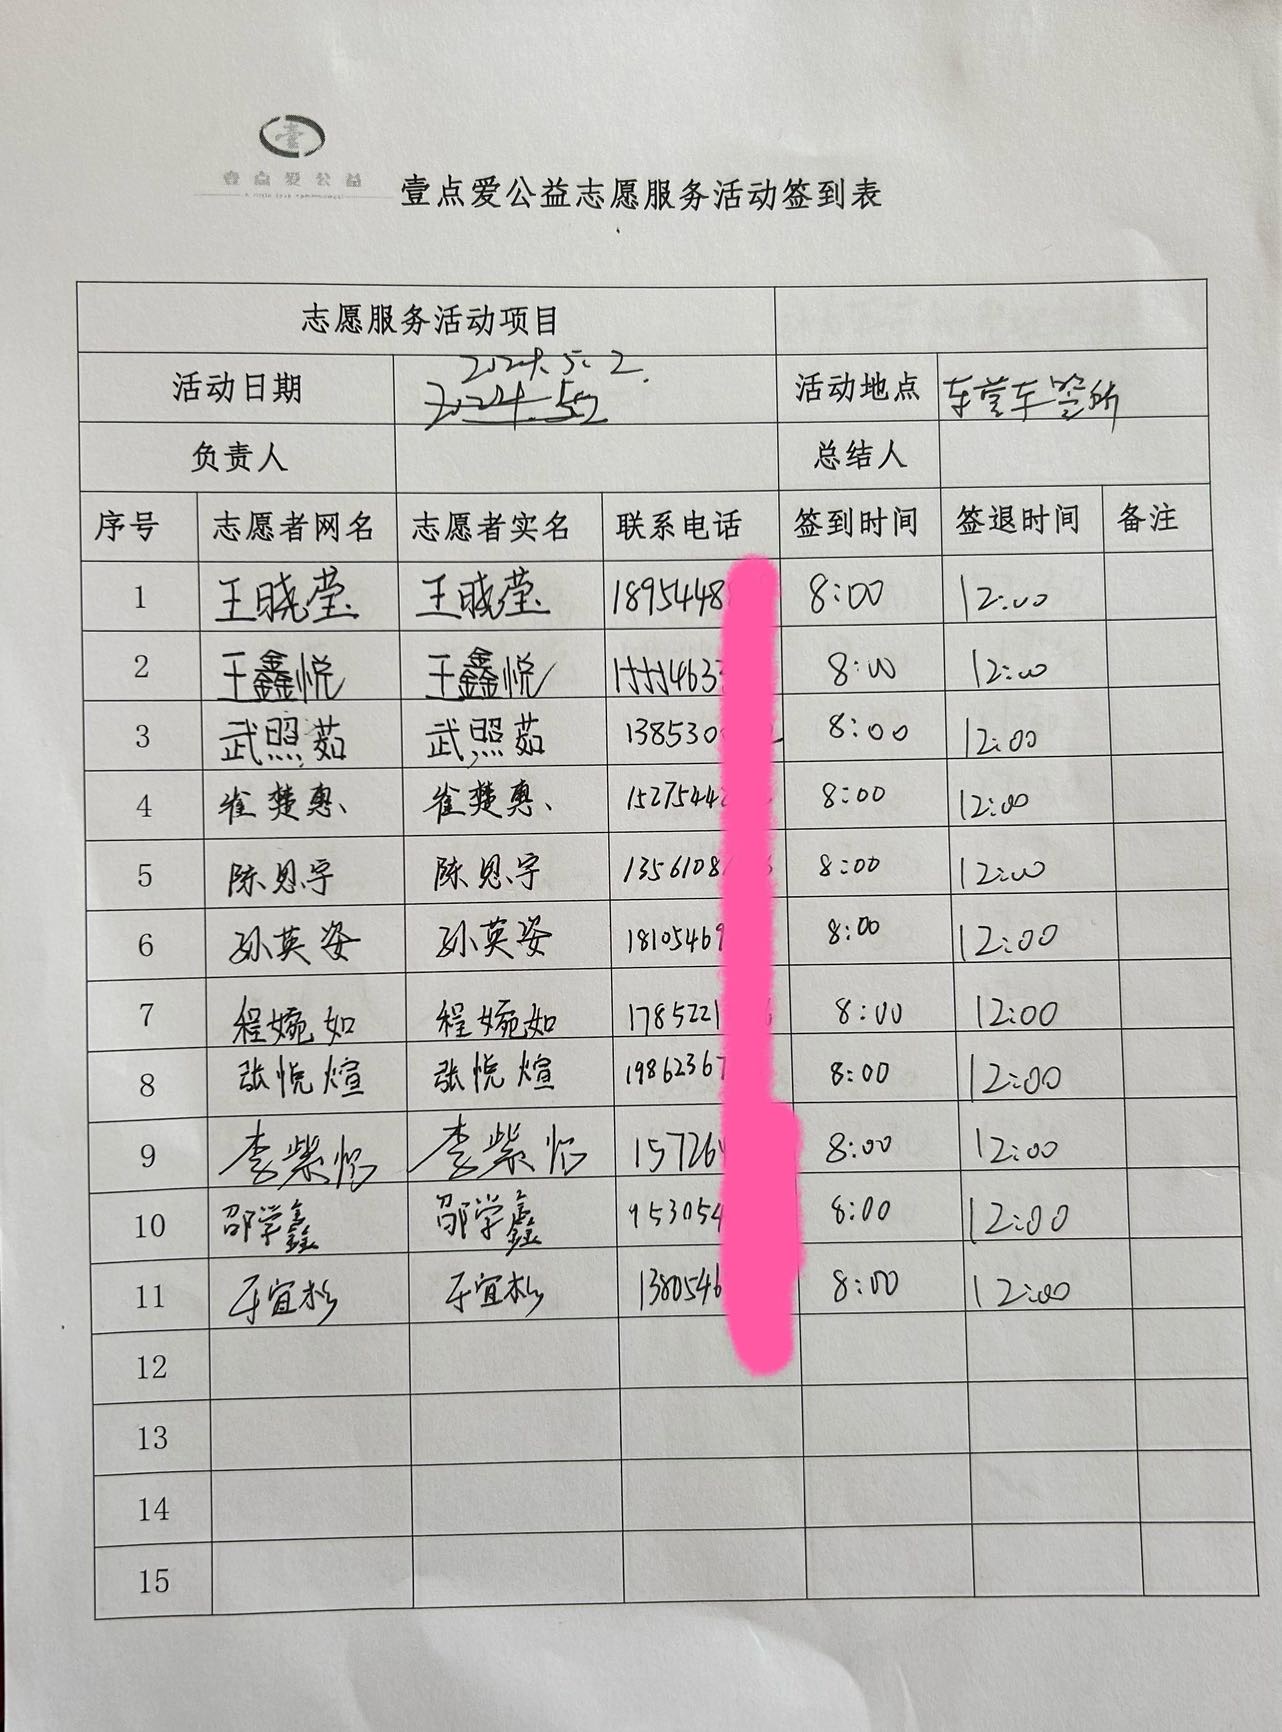 壹
壹点爱公益
壹点爱公益志愿服务活动签到表
志愿服务活动项目
活动日期 2024.5.2. 活动地点 车管所
负责人 总结人
序号 志愿者网名 志愿者实名 联系电话 签到时间 签退时间 备注
1 王晓莹 王晓莹 1895448 8:00 12:00
2 王鑫悦 王鑫悦 4633 8:00 12:00
3 武照茹 武照茹 138530 8:00 12:00
4 崔楚惠 崔楚惠 1527544 8:00 12:00
5 陈恩宇 陈恩宇 1356108 8:00 12:00
6 孙英姿 孙英姿 18105469 8:00 12:00
7 程婉如 程婉如 1785221 8:00 12:00
8 张悦煊 张悦煊 1986236 8:00 12:00
9 李紫怡 李紫怡 15726 8:00 12:00
10 邵学鑫 邵学鑫 53054 8:00 12:00
11 于宜杉 于宜杉 1380546 8:00 12:00
12
13
14
15